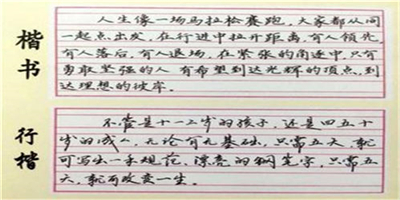 楷书
人生像一场马拉松赛跑，大家都从同
一起点出发，在行进中拉开距离，有人领先，
有人落后，有人退场，在紧张的角逐中，只有
勇敢坚强的人 有希望到达光辉的顶点，到
达理想的彼岸。
行楷
不管是十一二岁的孩子，还是四五十
岁的成人，无论有无基础，只需五天，就
可写出一手规范、漂亮的钢笔字，只需五
天，就可改变一生。